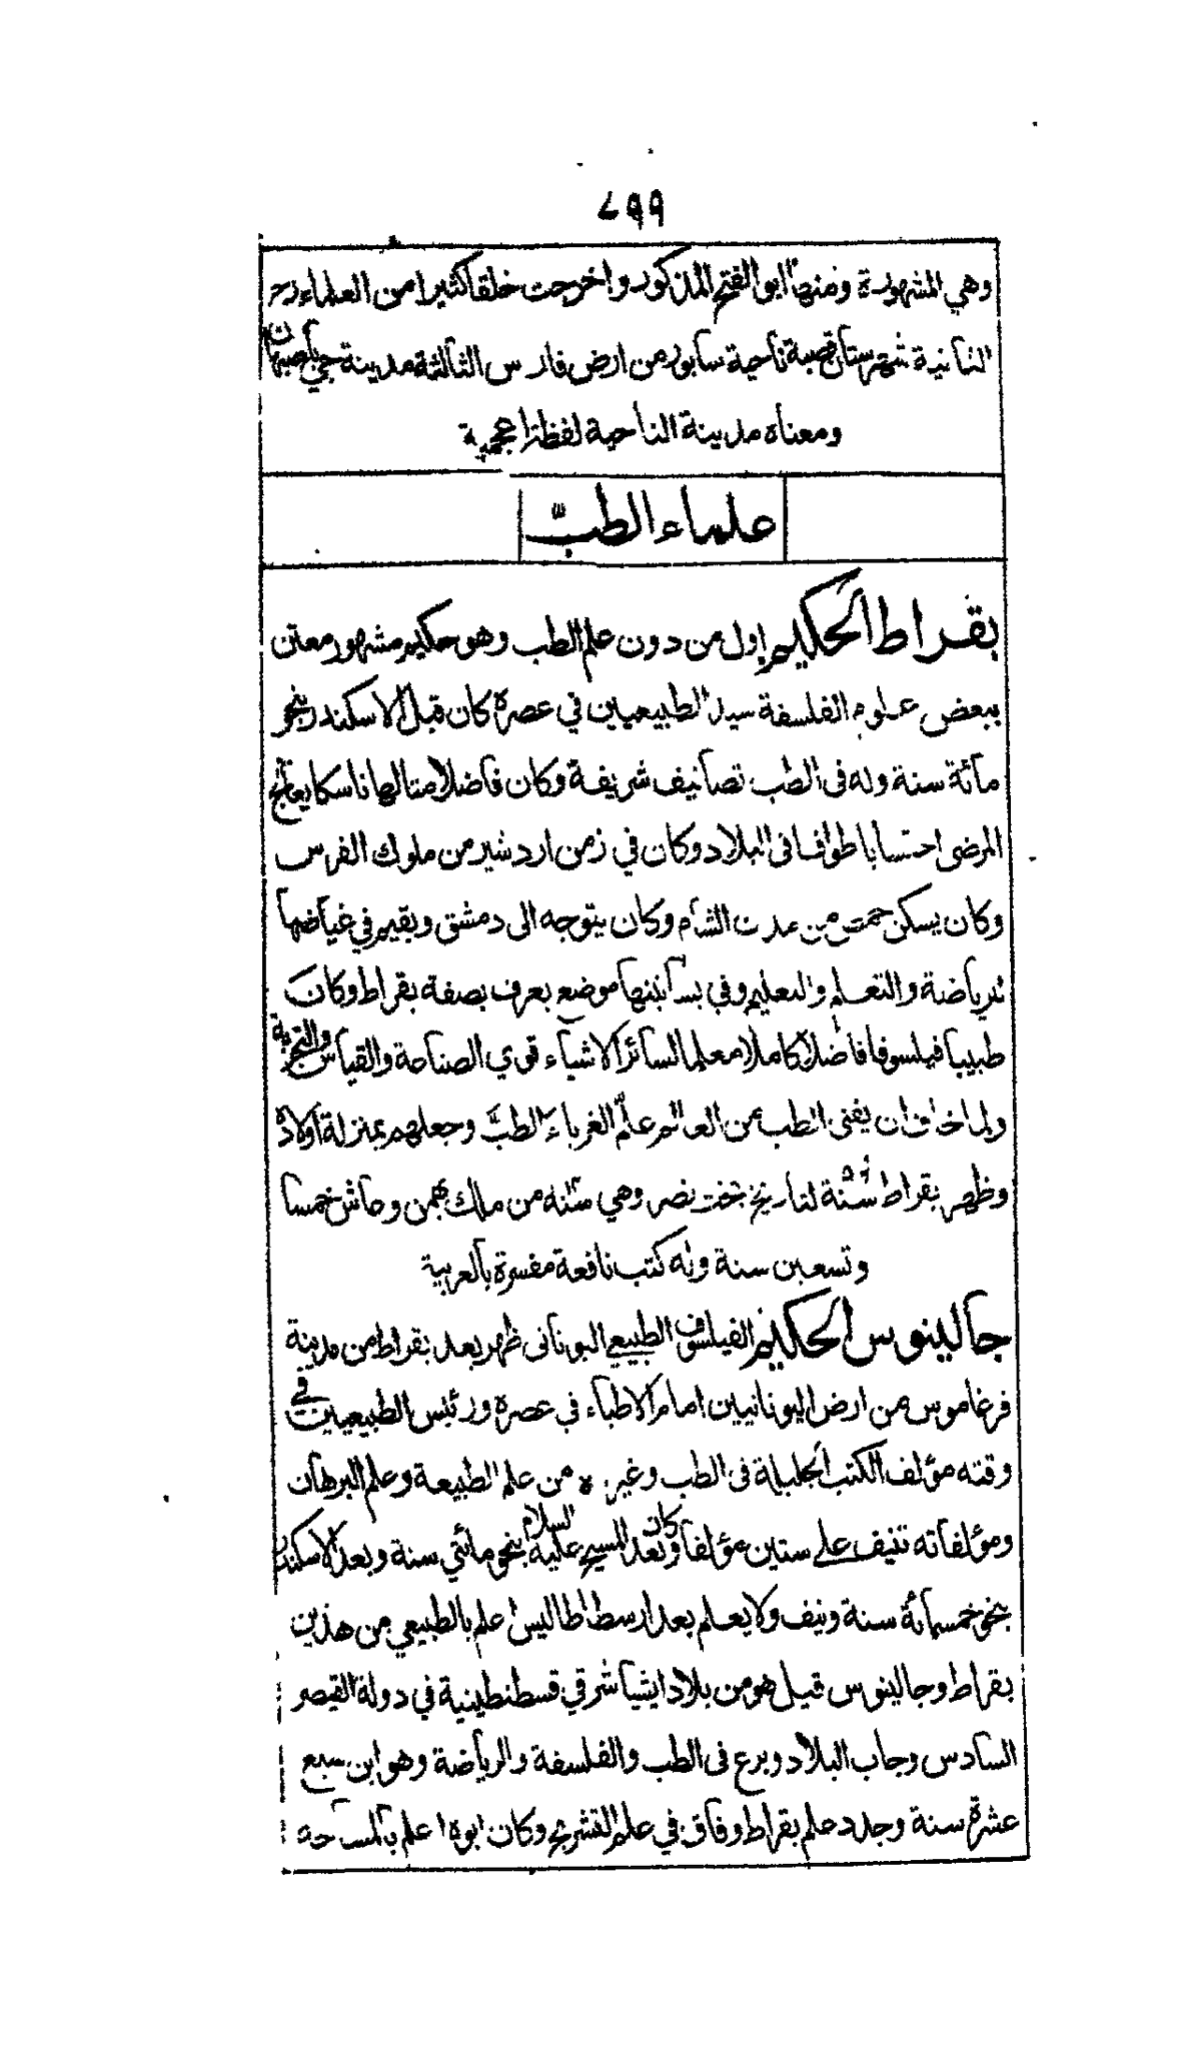 ٧٩٩
وهي المشهورة ومنها ابو الفتح المذكور واخرجت خلقا كثيرا من العلماء رح
الثانية شهرستان قصبة ناحية سابور من ارض فارس الثالثة مدينة جي باصبهان
ومعناه مدينة الناحية لفظة اعجمية
علماء الطبّ
بقراط الحكيم اول من دون علم الطب وهو حكيم مشهور معتن
ببعض علوم الفلسفة سيد الطبيعيين في عصره كان قبل الاسكندر بنحو
مائة سنة وله فى الطب تصانيف شريفة وكان فاضلا متالها ناسكا يعالج
المرضى احتسابا طوافا فى البلاد وكان في زمن اردشير من ملوك الفرس
وكان يسكن حمص من مدن الشام وكان يتوجه الى دمشق ويقيم في غياضها
للرياضة والتعلم والتعليم وفي بساتينها موضع يعرف بصفة بقراط وكان
طبيبا فيلسوفا فاضلا كاملا معلما لسائر الاشياء قوي الصناعة والقياس والتجربة
ولما خاف ان يفنى الطب من العالم علّم الغرباء الطبَّ وجعلهم بمنزلة اولاده
وظهر بقراط سنة لتاريخ بخت نصر وهي سنة من ملك بهمن وعاش خمسا
وتسعين سنة وله كتب نافعة مفسرة بالعربية
جالينوس الحكيم الفيلسوف الطبيعي اليونانى ظهر بعد بقراط من مدينة
فرغاموس من ارض اليونانيين امام الاطباء في عصره ورئيس الطبيعيين في
وقته مؤلف الكتب الجليلة فى الطب وغيره من علم الطبيعة وعلم البرهان
ومؤلفاته تنيف على ستين مؤلفا وكان بعد المسيح عليه السلام بنحو مائتي سنة وبعد الاسكندر
بنحو خمسمائة سنة ونيف ولا يعلم بعد ارسطاطاليس اعلم بالطبيعي من هذين
بقراط وجالينوس قيل هو من بلاد ايشيا شرقي قسطنطينية في دولة القيصر
السادس وجاب البلاد وبرع فى الطب والفلسفة والرياضة وهو ابن سبع
عشرة سنة وجدد علم بقراط وفاق في علم التشريح وكان ابوه اعلم بالمساحة